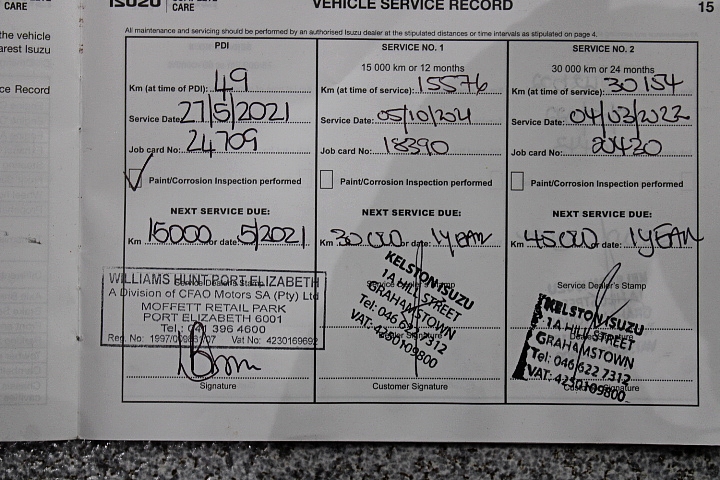 CARE ISUZU CARE VEHICLE SERVICE RECORD 15
the vehicle
arest Isuzu
ce Record
All maintenance and servicing should be performed by an authorised Isuzu dealer at the stipulated distances or time intervals as stipulated on page 4.
PDI
Km (at time of PDI): 49
Service Date: 27/5/2021
Job card No: 24709
Paint/Corrosion Inspection performed
NEXT SERVICE DUE:
Km 15000 or date: 5/2021
Service Dealer's Stamp
WILLIAMS HUNT PORT ELIZABETH
A Division of CFAO Motors SA (Pty) Ltd
MOFFETT RETAIL PARK
PORT ELIZABETH 6001
Tel.: 396 4600
Reg. No: Vat No: 4230169692
Signature
SERVICE NO. 1
15 000 km or 12 months
Km (at time of service): 15576
Service Date: 05/10/2021
Job card No: 18390
Paint/Corrosion Inspection performed
NEXT SERVICE DUE:
Km 30 000 or date: 1 YEAR
Service Dealer's Stamp
KELSTON ISUZU
1A HILL STREET
GRAHAMSTOWN
Tel: 046 622 7312
VAT: 4250109800
Customer Signature
SERVICE NO. 2
30 000 km or 24 months
Km (at time of service): 30154
Service Date: 04/03/2022
Job card No: 20420
Paint/Corrosion Inspection performed
NEXT SERVICE DUE:
Km 45 000 or date: 1 YEAR
Service Dealer's Stamp
KELSTON ISUZU
1A HILL STREET
GRAHAMSTOWN
Tel: 046 622 7312
VAT: 4250109800
Customer Signature